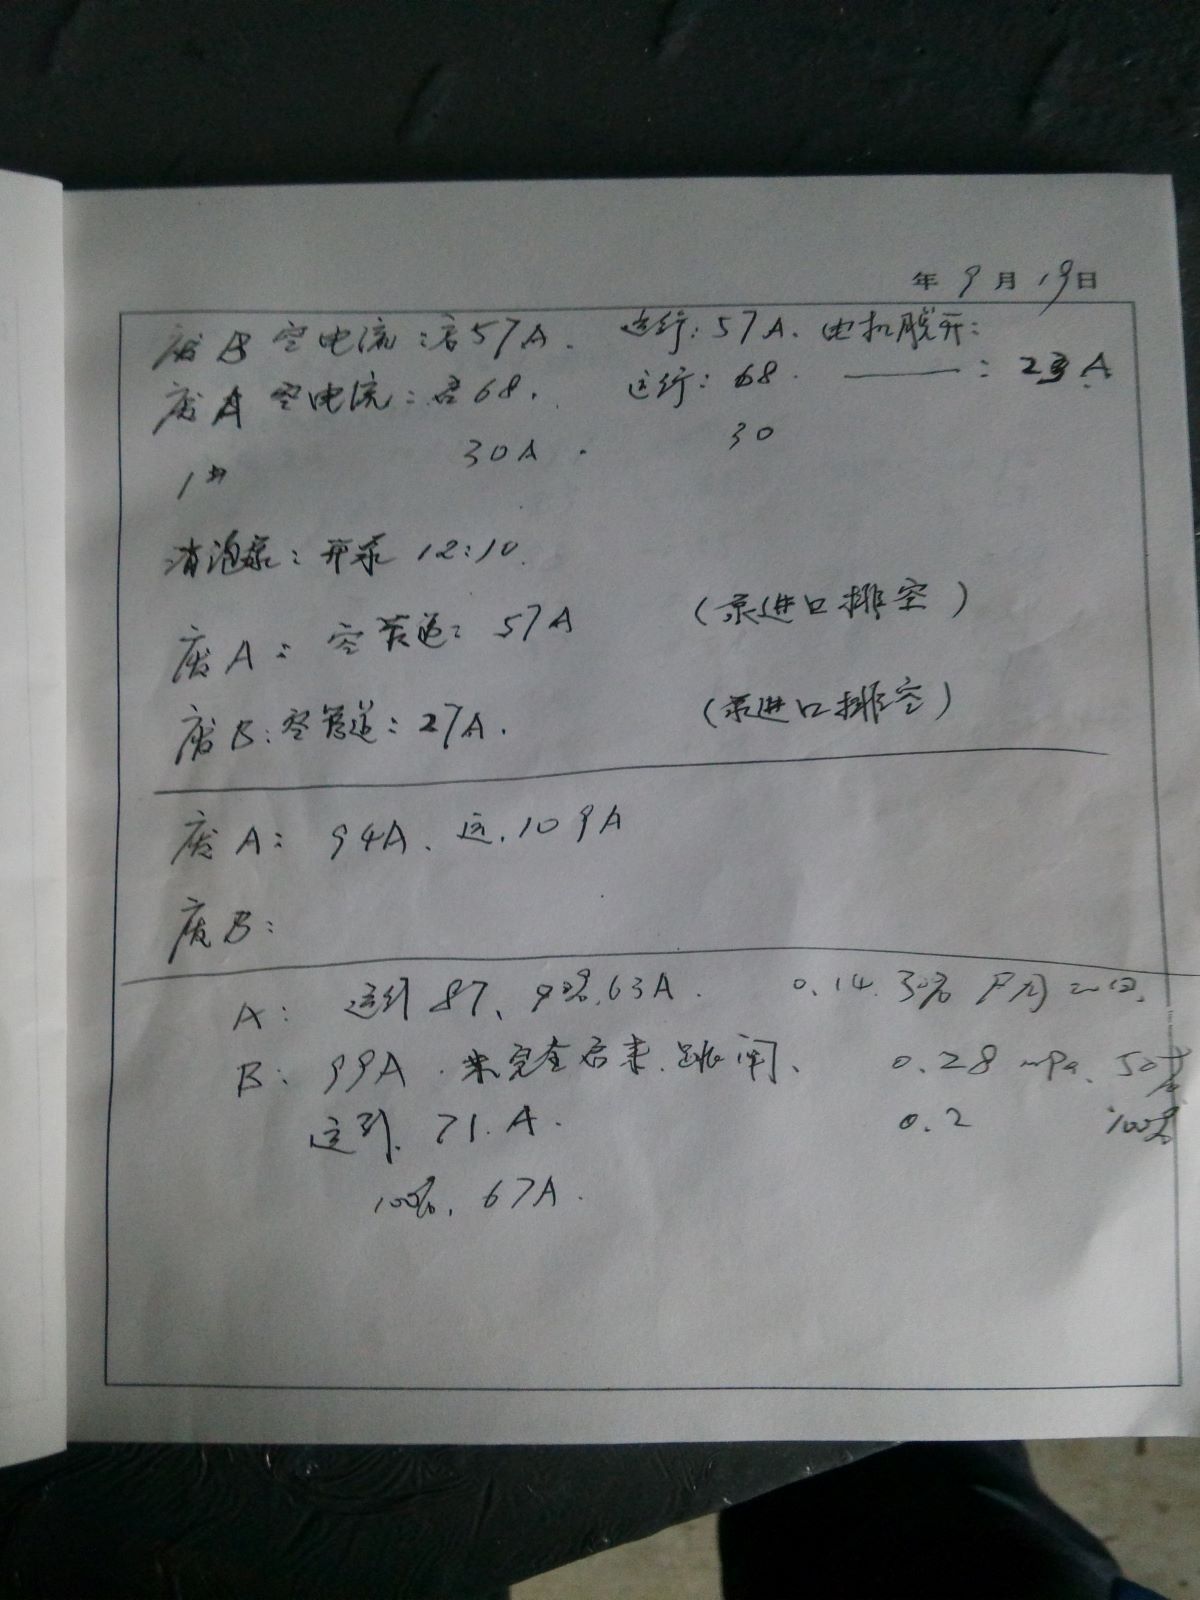 年 9 月 19 日
废B 空电流：启57A． 运行：57A、电机脱开：
废A 空电流：启68． 运行：68． ——：23A
1# 30A． 30
消泡泵：开泵 12:10.
废A： 空管道：57A （泵进口排空）
废B：空管道：27A． （泵进口排空）
废A： 94A、运．109A
废B：
A： 运行 87、90%，63A． 0.14. 30%
B： 99A．未完全启来．跳闸、 0.28 mpa、50%
运到．71.A． 0.2 100%
100%．67A．